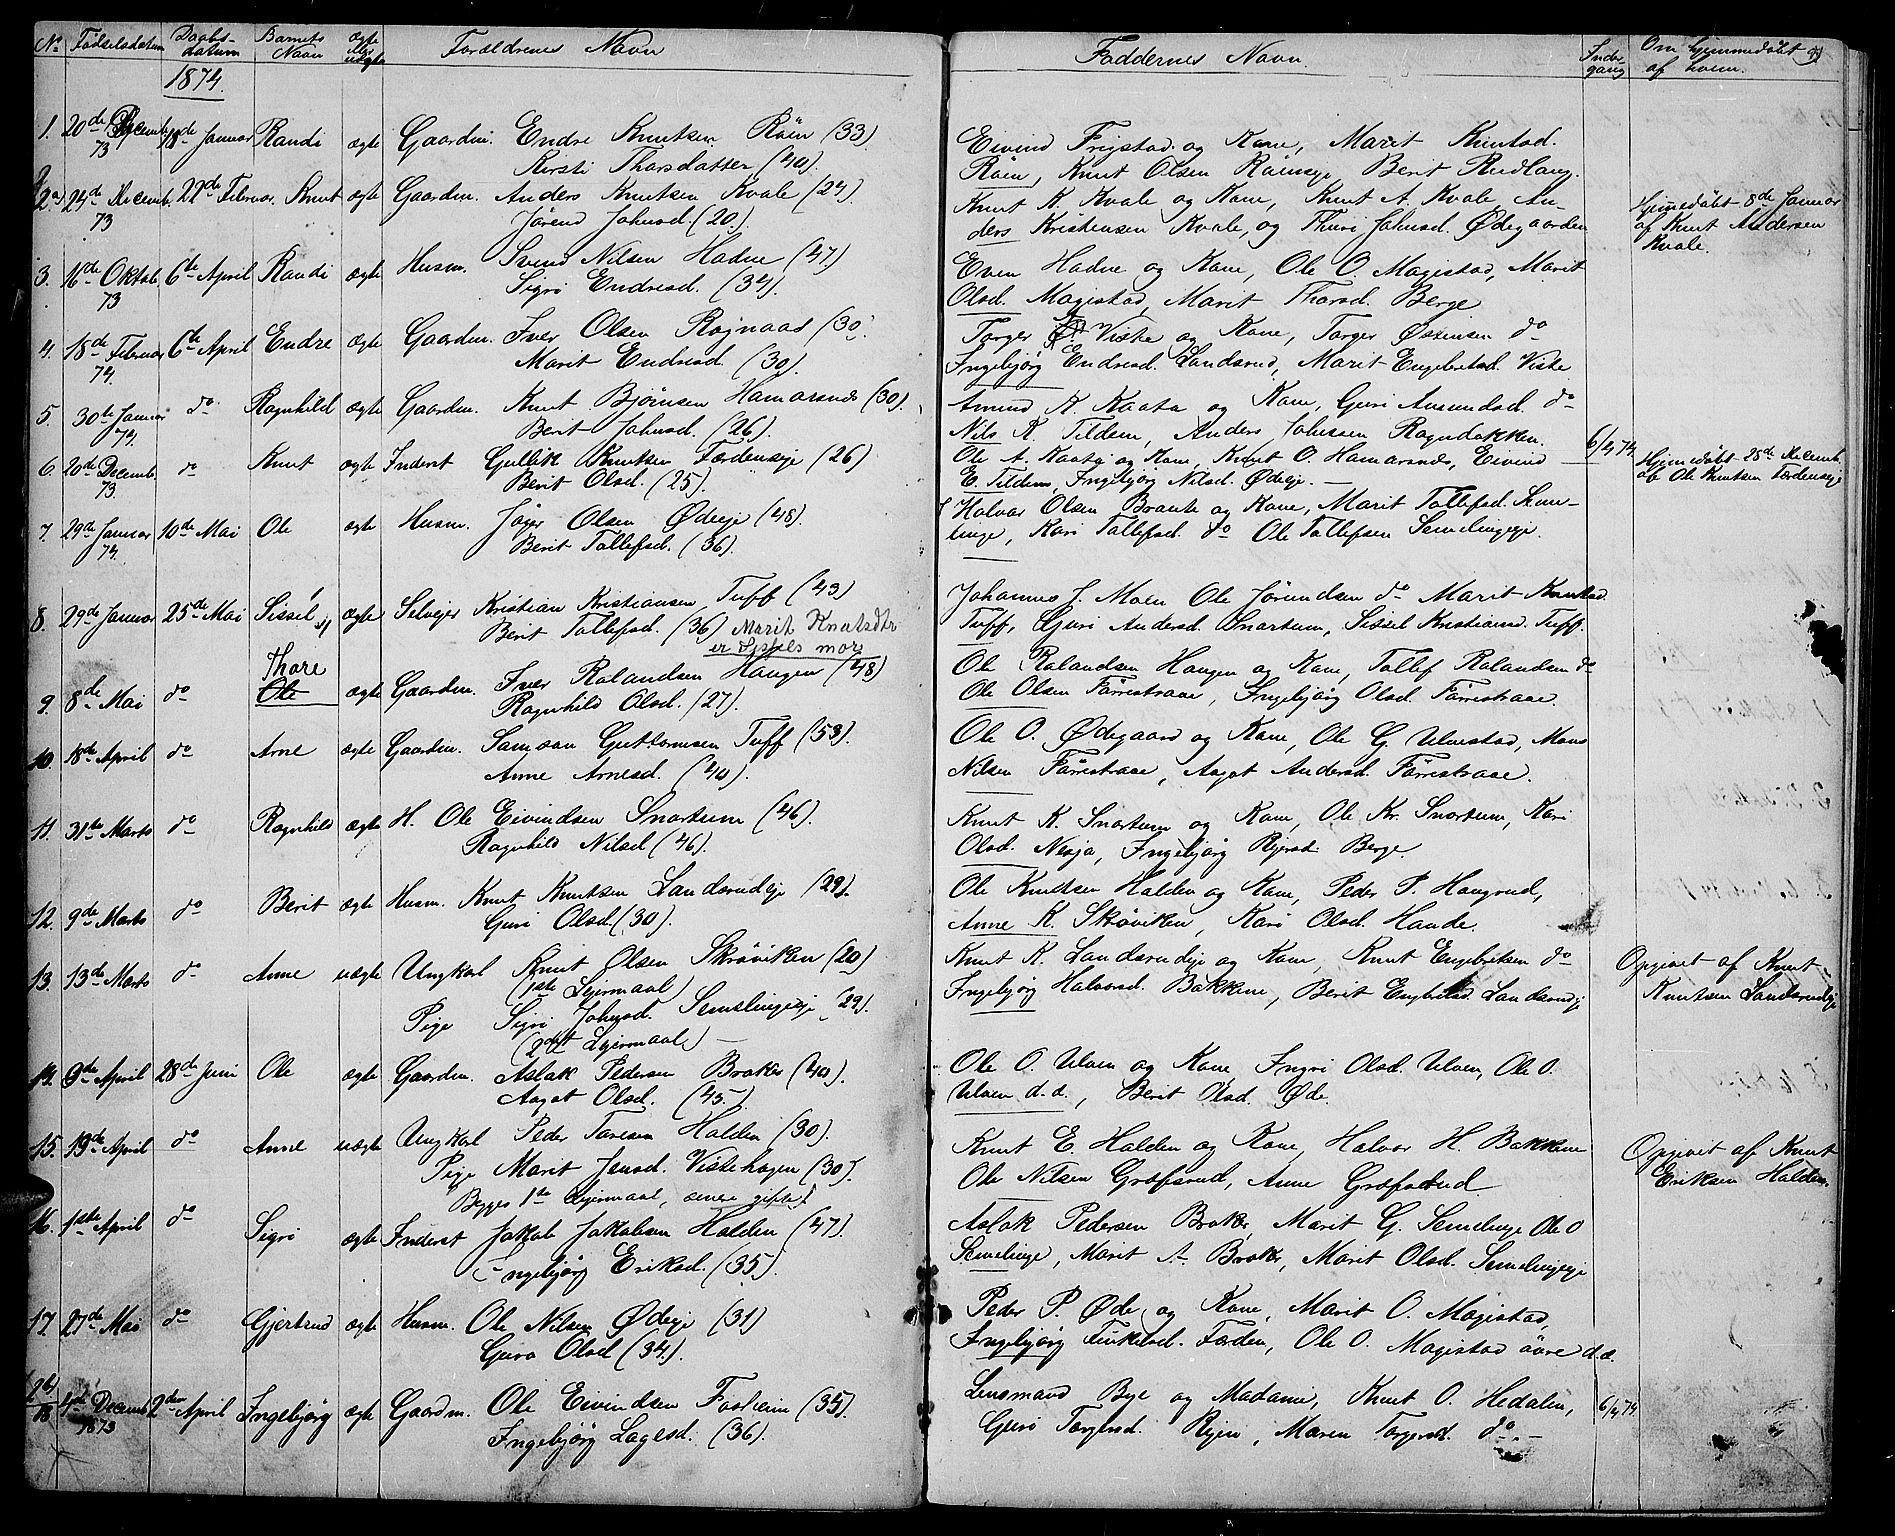 No Fødselsdatum Daabs-datum Barnets Navn ægte ell. uægte Forældrenes Navn
1874.
1. 20de Decemb. 73 18de Januar Randi ægte Gaardm. Endre Knutsen Røen (33)
Kersti Thorsdatter (40).
2. 24de Decemb. 73 22de Februar. Knut ægte Gaardm. Anders Knutsen Kvale (24)
Jørend Johnsd. (20).
3. 16de Oktob. 73 6te April Randi ægte Husm. Svend Nilsen Hadne (47.)
Sigri Endresd. (34).
4. 18de Februar 74. 6te April Endre ægte Gaardm. Iver Olsen Rognaas (30.
Marit Endresd. (30).
5. 30te Januar 74. do Ragnhild ægte Gaardm. Knut Bjørnsen Hamarsnds (30).
Berit Johnsd. (26).
6. 20de Decemb. 73 do Knut ægte Inderst Gullik Knutsen Fordenseje (26)
Berit Olsd. (25).
7. 29de Januar 74. 10de Mai Ole ægte Husm. Jøger Olsen Ødeeje (48).
Berit Tollefsd. (36).
8. 29de Januar 25de Mai Sissel ægte Selvejer Kristian Kristiansen Tuff (43)
Berit Tollefsd. (36) Marit Knutsdtr
er Sissels mor
Thore
9. 8de Mai do Ole ægte Gaardm. Iver Rolandsen Haugen (48)
Ragnhild Olsd. (27).
10. 18de April do Arne ægte Gaardm. Samson Guttormsen Tuff (53).
Anne Arnesd. (40).
11. 31te Marts do Ragnhild ægte H. Ole Eivindsen Snortum (46).
Ragnhild Nilsd (46).
12. 9de Marts do Berit ægte Husm. Knut Knutsen Landsrudeje (29).
Guri Olsd. (30).
13. 13de Marts do Anne uægte Ungkarl Knut Olsen Skrøviken (20)
(1ste Lejermaal)
Pige Sigri Johnsd. Semelingeje (29).
(2det Lejermaal)
14. 9de April 28de Juni Ole ægte Gaardm. Aslak Pedersen Broker (40).
Aagot Olsd. (45).
15. 19de April do Anne uægte Ungkarl Peder Toresen Halden (30).
Pige Marit Jensd. Vistehagen (30).
Begges 1ste Lejermaal, senere giftet
16. 1ste April do Sigri ægte Inderst Jakob Jakobsen Halden (47).
Ingebjørg Eriksd. (35).
17. 27de Mai do Gjertrud ægte Husm. Ole Nilsen Ødeje (31)
Guro Olsd (34).
18 4de Decemb. 1873 2den April Ingebjørg ægte Gaardm. Ole Eivindsen Fosheim (35).
Ingebjørg Lagesd. (36).
Faddernes Navn. Inde-gang Om hjemmedøbt af hvem.
Eivind Frøistad og Kone, Marit Knutsd.
Røen, Knut Olsen Røenseje, Berit Rudlang.
Knut K. Kvale og Kone, Knut A. Kvale, An-
ders Kristensen Kvale, og Thuri Johnsd. Ødegaarden
Hjemmedøbt 8de Januar
af Knut Andersen
Kvale.
Even Hadne og Kone, Ole O. Magistad, Marit
Olsd. Magistad, Marit Thorsd. Berge
Torger Ø. Viste og Kone, Torger Østensen do
Ingebjørg Endresd. Landsrud, Marit Engebretsd. Viste
Amund K. Kaata og Kone, Guri Amundsd. do
Nils K. Tildem, Anders Johnsen Rogndokken.
Ole A. Kaata og Kone, Knut O. Hamarsnds, Eivind 6/4 74.
E. Tildem, Ingebjørg Nilsd. Ødeje.
Hjemmedøbt 28de Decemb.
af Ole Knutsen Fordenseje
Halvor Olsen Brante og Kone, Marit Tollefsd. Sem-
linge, Kari Tollefsd. do Ole Tollefsen Semelingeje.
Johannes J. Moen Ole Jørundsen do Marit Knutsd.
Tuff, Guri Andersd. Snortum, Sissel Kristiansd. Tuff.
Ole Rolandsen Haugen og Kone, Tollef Rolandsen do
Ole Olsen Førrestraae, Ingebjørg Olsd. Førrestraae.
Ole O. Ødegaard og Kone, Ole G. Ulvestad, Mons
Nilsen Førrestraae, Aagot Andersd. Førrestraae.
Knut K. Snortum og Kone, Ole Kr. Snortum, Kari
Olsd. Nesja, Ingebjørg Rjersd. Berge.
Ole Knutsen Halden og Kone, Peder P. Haugrud,
Anne K. Skrøviken, Kari Olsd. Haude.
Knut K. Landsrudeje og Kone, Knut Engebretsen do
Ingebjørg Halvorsd. Bakkene, Berit Engebretsd. Landsrudeje
Opgivet af Knut
Knutsen Landsrudeje
Ole O. Ulven og Kone, Ingri Olsd. Ulven, Ole O.
Ulven d.d., Berit Olsd. Øde.
Knut E. Halden og Kone, Halvor H. Bakkene
Ole Nilsen Grøfsrud, Anne Grøfsrud
Opgivet af Knut
Eriksen Halden.
Aslak Pedersen Broker, Marit G. Semelinge Ole O
Semelinge, Marit A. Broker, Marit Olsd. Semelingeje
Peder P. Øde og Kone, Marit O. Magistad,
Ingebjørg Tinkelsd. Forden, Ole O. Magistad øvre d.æ.
Lensmand Bye og Madame, Knut O. Hedalen, 6/4 74.
Guri Torgersd. Rejen, Maren Torgersd. do